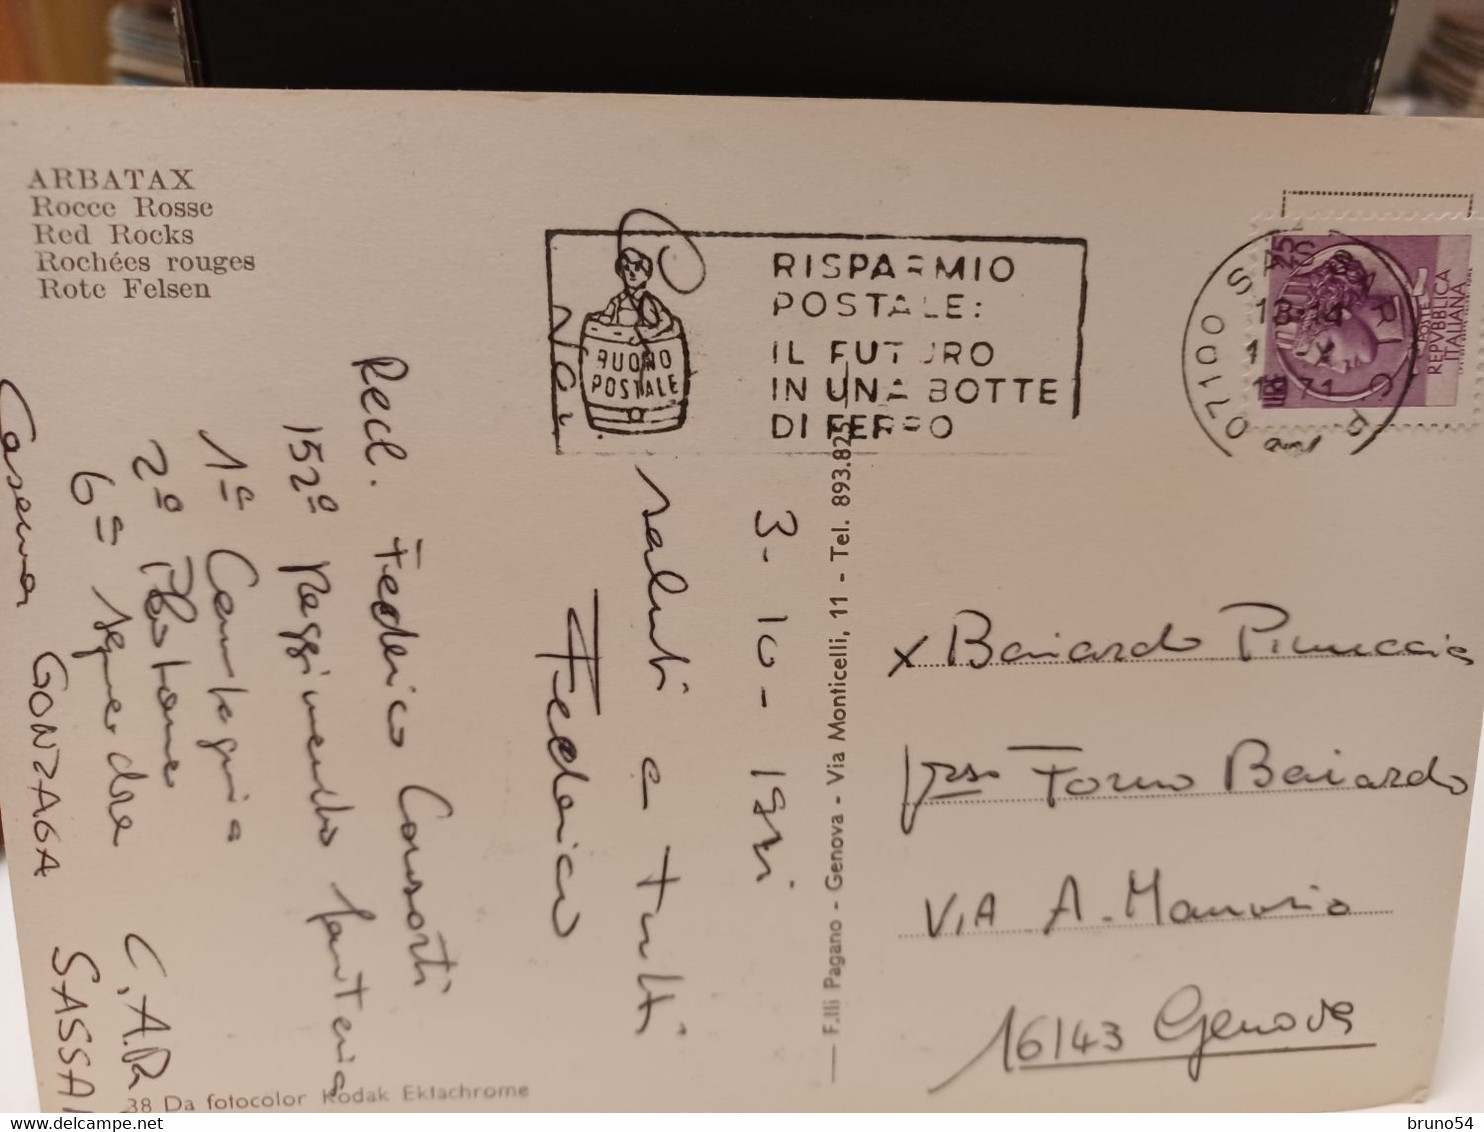 ARBATAX
Rocce Rosse
Red Rocks
Rochées rouges
Rote Felsen
BUONO
POSTALE
RISPARMIO
POSTALE:
IL FUTURO
IN UNA BOTTE
DI FERRO
07100 SASSARI
18-14
1971
POSTE
REPVBBLICA
ITALIANA
3-10-1971
saluti a tutti
Federico
Recl. Federico Consorti
152º Reggimento fanteria
1ª Compagnia
2º Plotone
6ª squadra C.A.R.
Caserma GONZAGA SASSARI
F.lli Pagano - Genova - Via Monticelli, 11 - Tel. 893.825
x Baiardo Pinuccia
presso Forno Baiardo
VIA A.
16143 Genova
38 Da fotocolor Kodak Ektachrome
bruno54